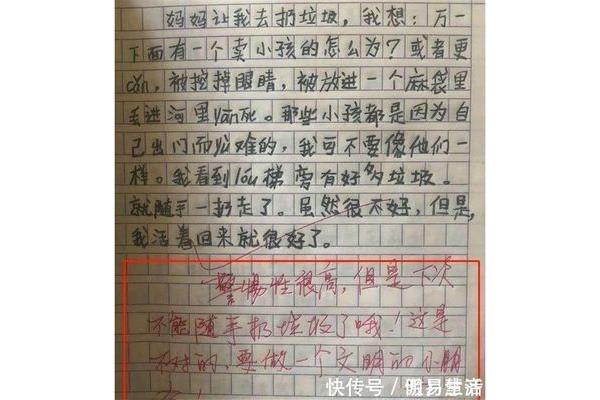 妈妈让我去扔垃圾，我想：万一
下面有一个卖小孩的怎么为？或者更
cǎn，被挖掉眼睛，被放进一个麻袋里
丢进河里yān死。那些小孩都是因为自
己出门而难的，我可不要像他们一
样。我看到lóu梯旁有好多垃圾。
就随手一扔走了。虽然很不好，但是，
我活着回来就很好了。
警惕性很高，但是下次
不能随手扔垃圾了哦！这是
不对的，要做一个文明的小朋
友！
快传号／易慧浠